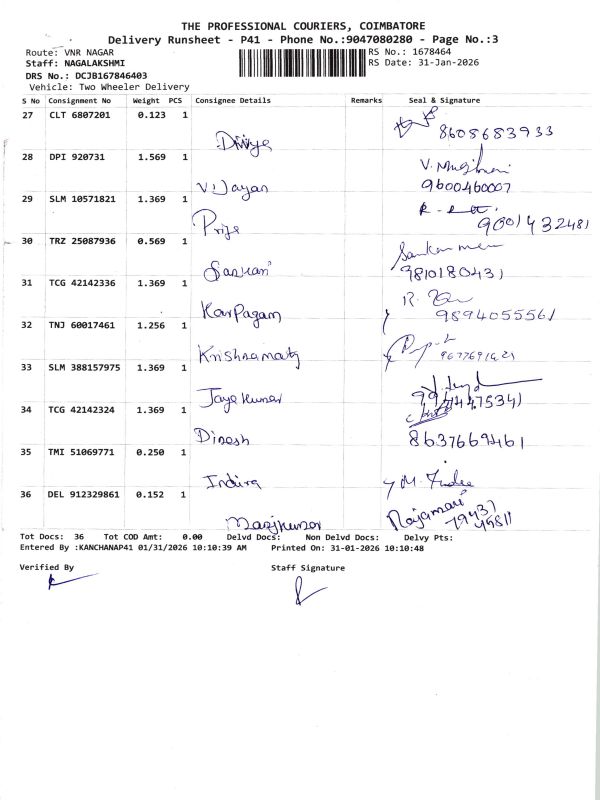 THE PROFESSIONAL COURIERS, COIMBATORE
Delivery Runsheet - P41 - Phone No.:9047080280 - Page No.:3
Route: VNR NAGAR
RS No.: 1678464
Staff: NAGALAKSHMI
RS Date: 31-Jan-2026
DRS No.: DCJB167846403
Vehicle: Two Wheeler Delivery
S No Consignment No Weight PCS Consignee Details Remarks Seal & Signature
27 CLT 6807201 0.123 1
Divya 8608683933
28 DPI 920731 1.569 1
Vijayan 9600460007
29 SLM 10571821 1.369 1
Priya 9001432481
30 TRZ 25087936 0.569 1
9810180431
31 TCG 42142336 1.369 1
Karpagam 9894055561
32 TNJ 60017461 1.256 1
33 SLM 388157975 1.369 1
Jayakumar
34 TCG 42142324 1.369 1
Dinesh 8637669461
35 TMI 51069771 0.250 1
Indira
36 DEL 912329861 0.152 1
Tot Docs: 36 Tot COD Amt: 0.00 Delvd Docs: Non Delvd Docs: Delvy Pts:
Entered By :KANCHANAP41 01/31/2026 10:10:39 AM Printed On: 31-01-2026 10:10:48
Verified By Staff Signature